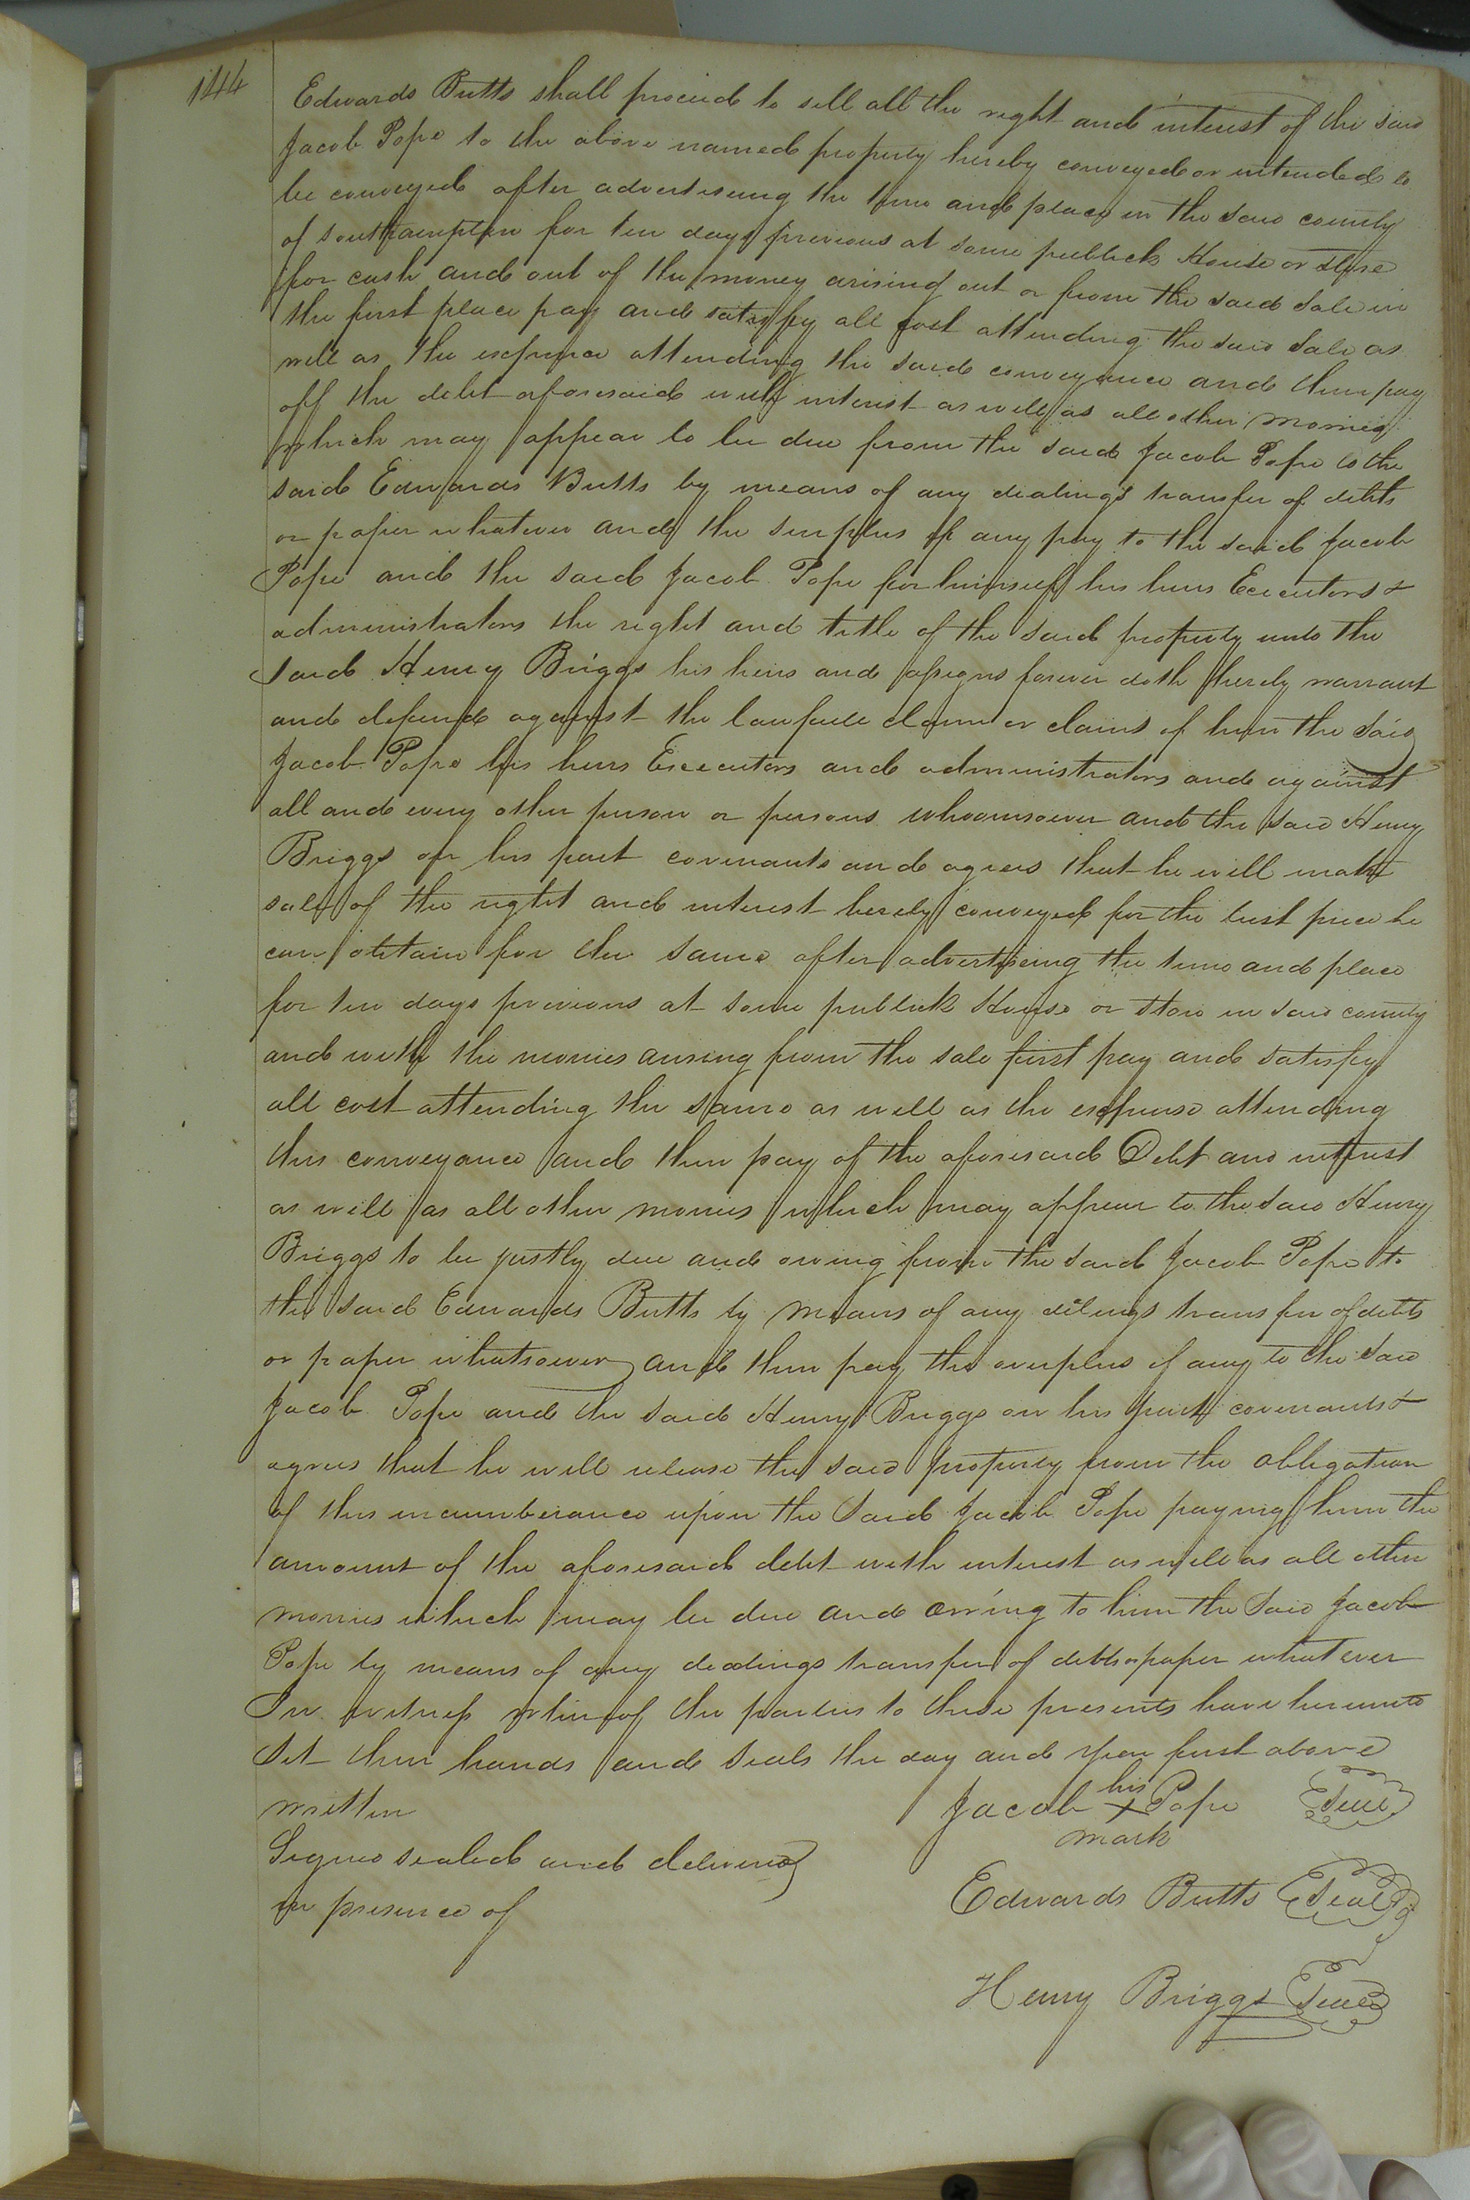 144
Edwards Butts shall proceed to sell all the right and interest of the said
Jacob Pope to the above named property hereby conveyed or intended to
be conveyed after advertiseing the time and place in the said county
of Southampton for ten days previous at some publick House or store
for cash and out of the money arising out or from the said sale in
the first place pay and satisfy all cost attending the said sale as
well as the expence attending the said conveyance and then pay
off the debt aforesaid with interest as well as all other monies
which may appear to be due from the said Jacob Pope to the
said Edwards Butts by means of any dealings transfer of debts
or paper whatever and the surplus if any pay to the said Jacob
Pope and the said Jacob Pope for himself his heirs Executors &
administrators the right and title of the said property unto the
said Henry Briggs his heirs and assigns forever doth hereby warrant
and defend against the lawfull claim or claims of him the said
Jacob Pope his heirs Executors and administrators and against
all and every other person or persons whoomsoever and the said Henry
Briggs on his part covenants and agrees that he will make
sale of the right and interest hereby conveyed for the best price he
can obtain for the same after advertiseing the time and place
for ten days previous at some publick House or store in said county
and with the monies arising from the sale first pay and satisfy
all cost attending the same as well as the expense attending
this conveyance and then pay of the aforesaid Debt and interest
as well as all other monies which may appear to the said Henry
Briggs to be justly due and owing from the said Jacob Pope to
the said Edwards Butts by means of any dilings transfer of debts
or paper whatsoever and then pay the overplus if any to the said
Jacob Pope and the said Henry Briggs on his part covenants &
agrees that he will release the said property from the obligation
of this incumberance upon the said Jacob Pope paying him the
amount of the aforesaid debt with interest as well as all other
monies which may be due and owing to him the said Jacob
Pope by means of any dealings transfer of debts or paper whatever
In witness whereof the parties to these presents have hereunto
Set their hands and seals the day and year first above
written
Jacob his X mark Pope Seal
Signed sealed and delivered
in presence of
Edwards Butts Seal
Henry Briggs Seal